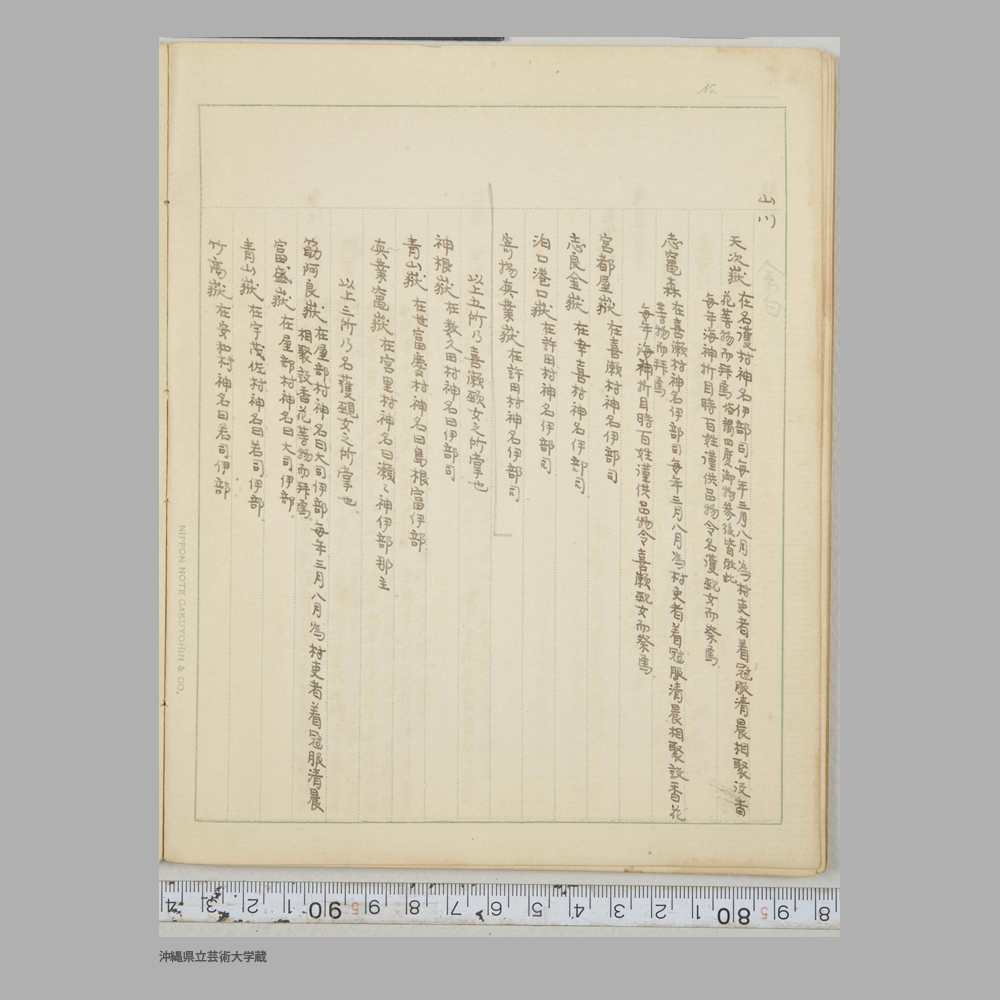 No.
山川
天次嶽 在名護村神名伊部司毎年三月八月為村吏者着冠服清晨相聚設香
花等物而拜焉 俗謂四度御物参後皆倣此
毎年海神折目時百姓謹供品物令名護巫女而祭焉
志竃森 在喜瀬村神名伊部司毎年三月八月為村吏者着冠服清晨相聚設香花
等物而拜焉
毎年海神折目時百姓謹供品物令喜瀬巫女而祭焉
宮都屋嶽 在喜瀬村神名伊部司
志良金嶽 在幸喜村神名伊部司
泊口港口嶽 在許田村神名伊部司
寄揚真業嶽 在許田村神名伊部司
以上五所乃喜瀬巫女之所掌也
神根嶽 在数久田村神名曰伊部司
青山嶽 在世富慶村神名曰島根富伊部
真業竃嶽 在宮里村神名曰瀬々神伊部那主
以上三所乃名護巫女之所掌也
筋阿良嶽 在屋部村神名曰大司伊部 毎年三月八月為村吏者着冠服清晨
相聚設香花等物而拜焉
富盛嶽 在屋部村神名曰大司伊部
青山嶽 在宇茂佐村神名曰若司伊部
竹高嶽 在安和村神名曰若司伊部
NIPPON NOTE GAKUYOHIN & CO.
4 3 2 1 90 9 8 7 6 5 4 3 2 1 80 8
沖縄県立芸術大学蔵